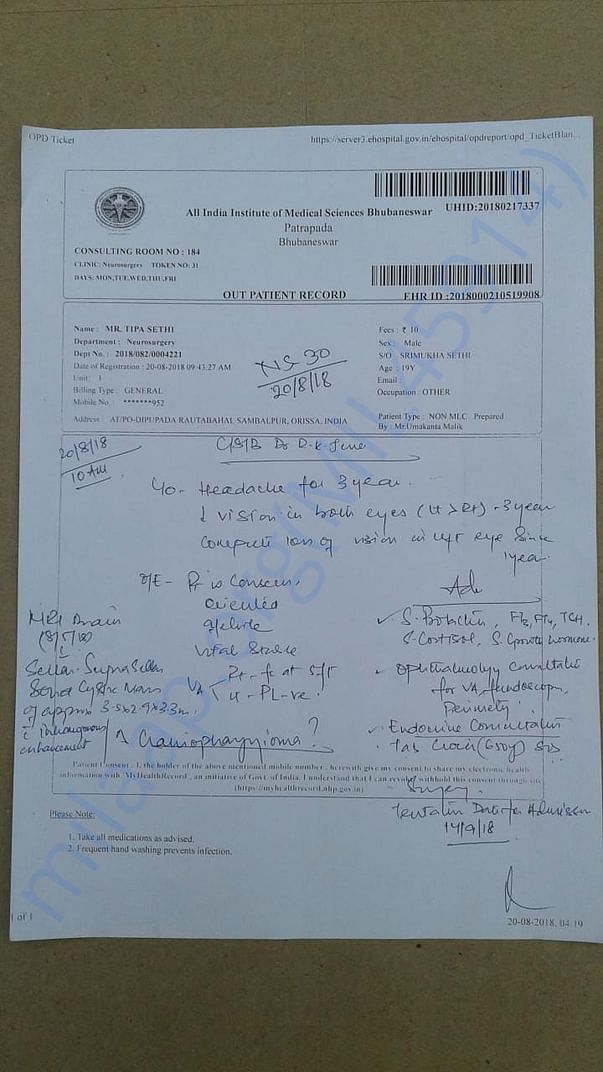 OPD Ticket https://server3.ehospital.gov.in/ehospital/opdreport/opd_TicketBlan...
All India Institute of Medical Sciences Bhubaneswar UHID:20180217337
Patrapada
Bhubaneswar
CONSULTING ROOM NO : 184
CLINIC: Neurosurgery TOKEN NO: 31
DAYS: MON,TUE,WED,THU,FRI
OUT PATIENT RECORD EHR ID :2018000210519908
Name : MR. TIPA SETHI Fees : ₹ 10
Department : Neurosurgery Sex : Male
Dept No. : 2018/082/0004221 S/O SRIMUKHA SETHI
Date of Registration : 20-08-2018 09:43:27 AM Age : 19Y
Unit: 1 Email :
Billing Type : GENERAL Occupation : OTHER
Mobile No : *******952
NS 30
20/8/18
Address AT/PO-DIPUPADA RAUTABAHAL SAMBALPUR, ORISSA, INDIA Patient Type : NON MLC Prepared
By : Mr.Umakanta Malik
20/8/18
10 AM
C/S/B Dr
Headache for 3 year.
↓ vision in both eyes (Lt > Rt) - 3 year
complete loss of vision in left eye since
1 year.
O/E - Pt is
Oriented
Vital Stable
VA Rt - fc at 5ft
Lt - PL -ve.
MRI Brain
Sellar - Supra Sellar
Cystic Mass
of approx 3.5x2.9x3.3
enhancement
Craniopharyngioma?
Adv
S. Prolactin, FT3, FT4, TSH.
S. Cortisol, S. Growth hormone.
Ophthalmology
for VA, fundoscopy,
Perimetry
Endocrine
Patient Consent : I, the holder of the above mentioned mobile number , herewith give my consent to share my electronic health
information with 'MyHealthRecord', an initiative of Govt. of India. I understand that I can revoke/withhold this consent through site
(https://myhealthrecord.nhp.gov.in)
Date for Admission
17/9/18
Please Note:
1. Take all medications as advised.
2. Frequent hand washing prevents infection.
1 of 1 20-08-2018, 04:19